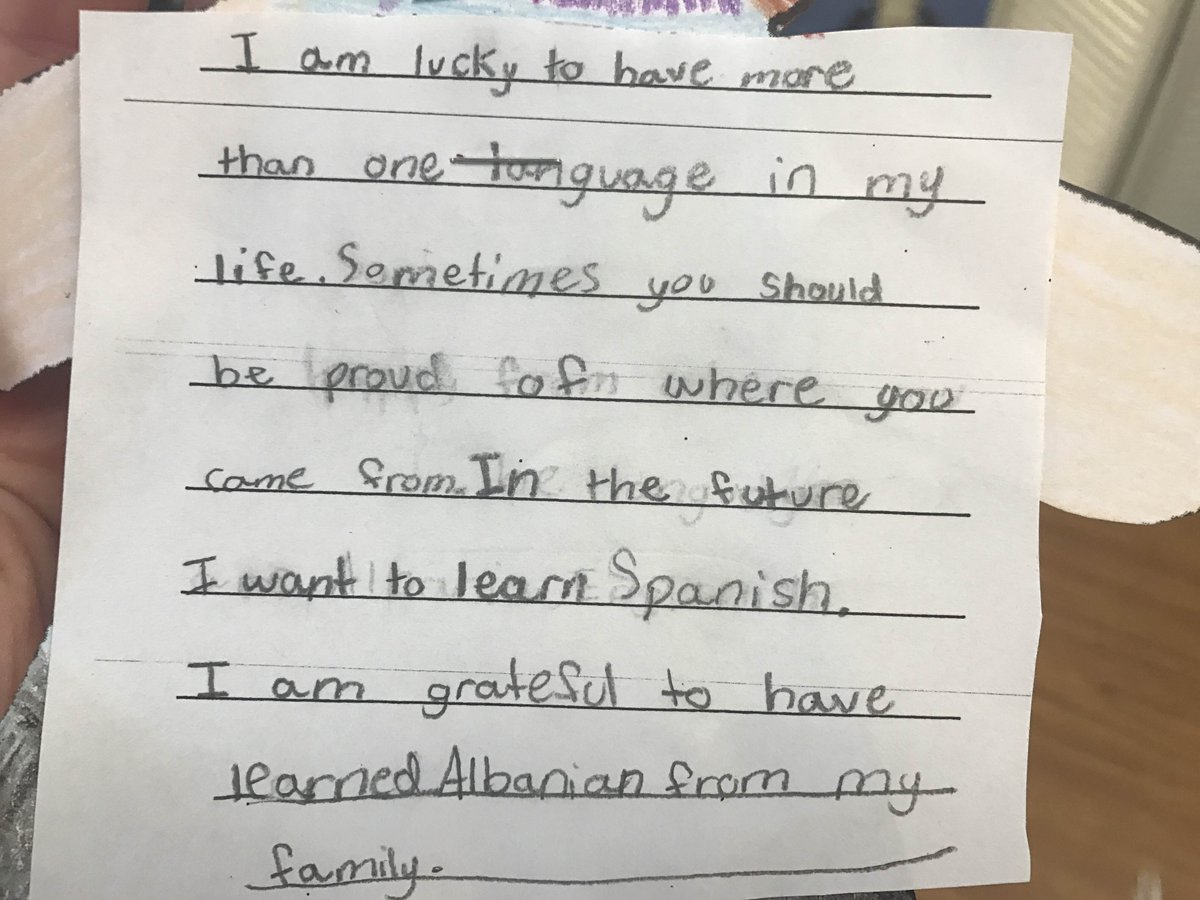 I am lucky to have more
than one language in my
life. Sometimes you should
be proud of where you
came from. In the future
I want to learn Spanish.
I am grateful to have
learned Albanian from my
family.